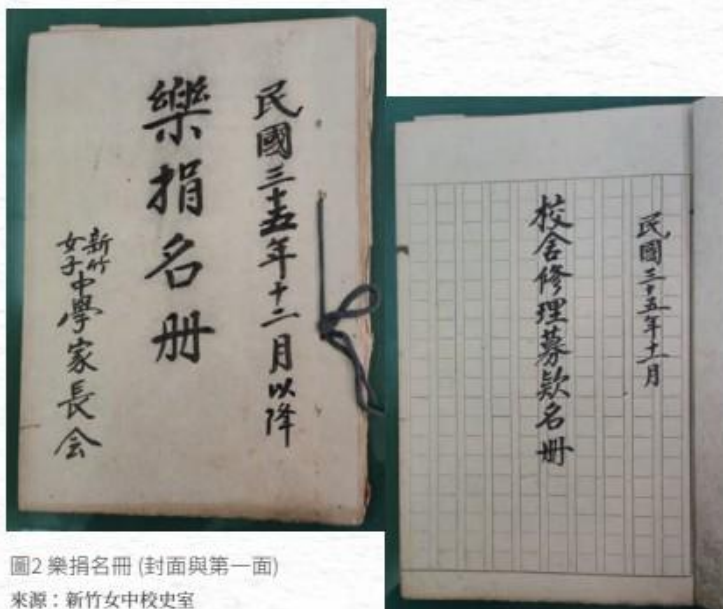 民國三十五年十二月以降
樂捐名册
新竹女子中學家長会
民國三十五年十一月
校舍修理募欵名册
圖2 樂捐名冊 (封面與第一面)
來源：新竹女中校史室